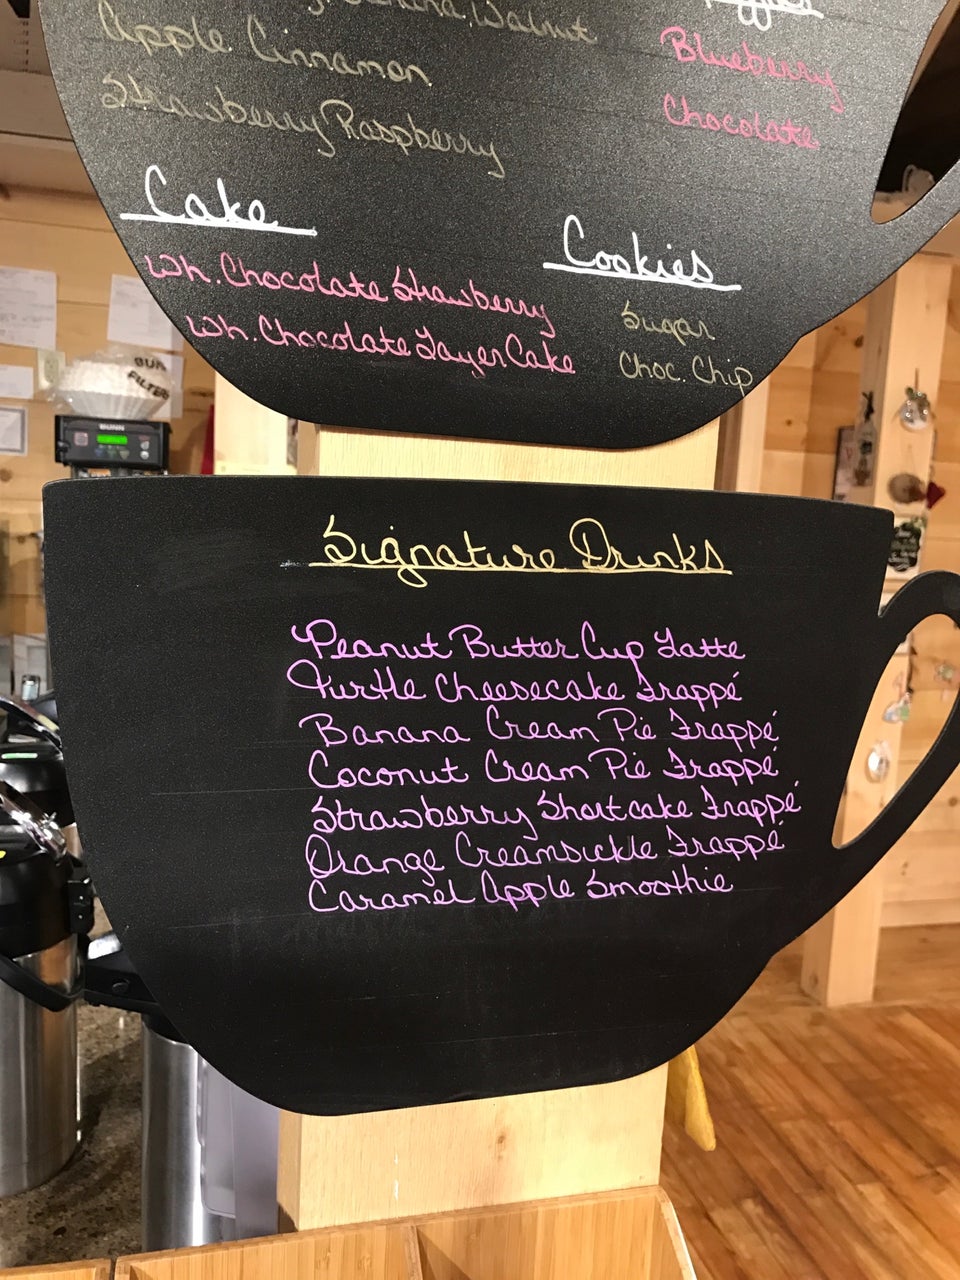 Banana Walnut
Apple Cinnamon
Strawberry Raspberry
Blueberry
Chocolate
Cake
Wh. Chocolate Strawberry
Wh. Chocolate Layer Cake
Cookies
Sugar
Choc. Chip
BUNN
FILTERS
BUNN
Signature Drinks
Peanut Butter Cup Latte
Turtle Cheesecake Frappé
Banana Cream Pie Frappé
Coconut Cream Pie Frappé
Strawberry Shortcake Frappé
Orange Creamsickle Frappé
Caramel Apple Smoothie